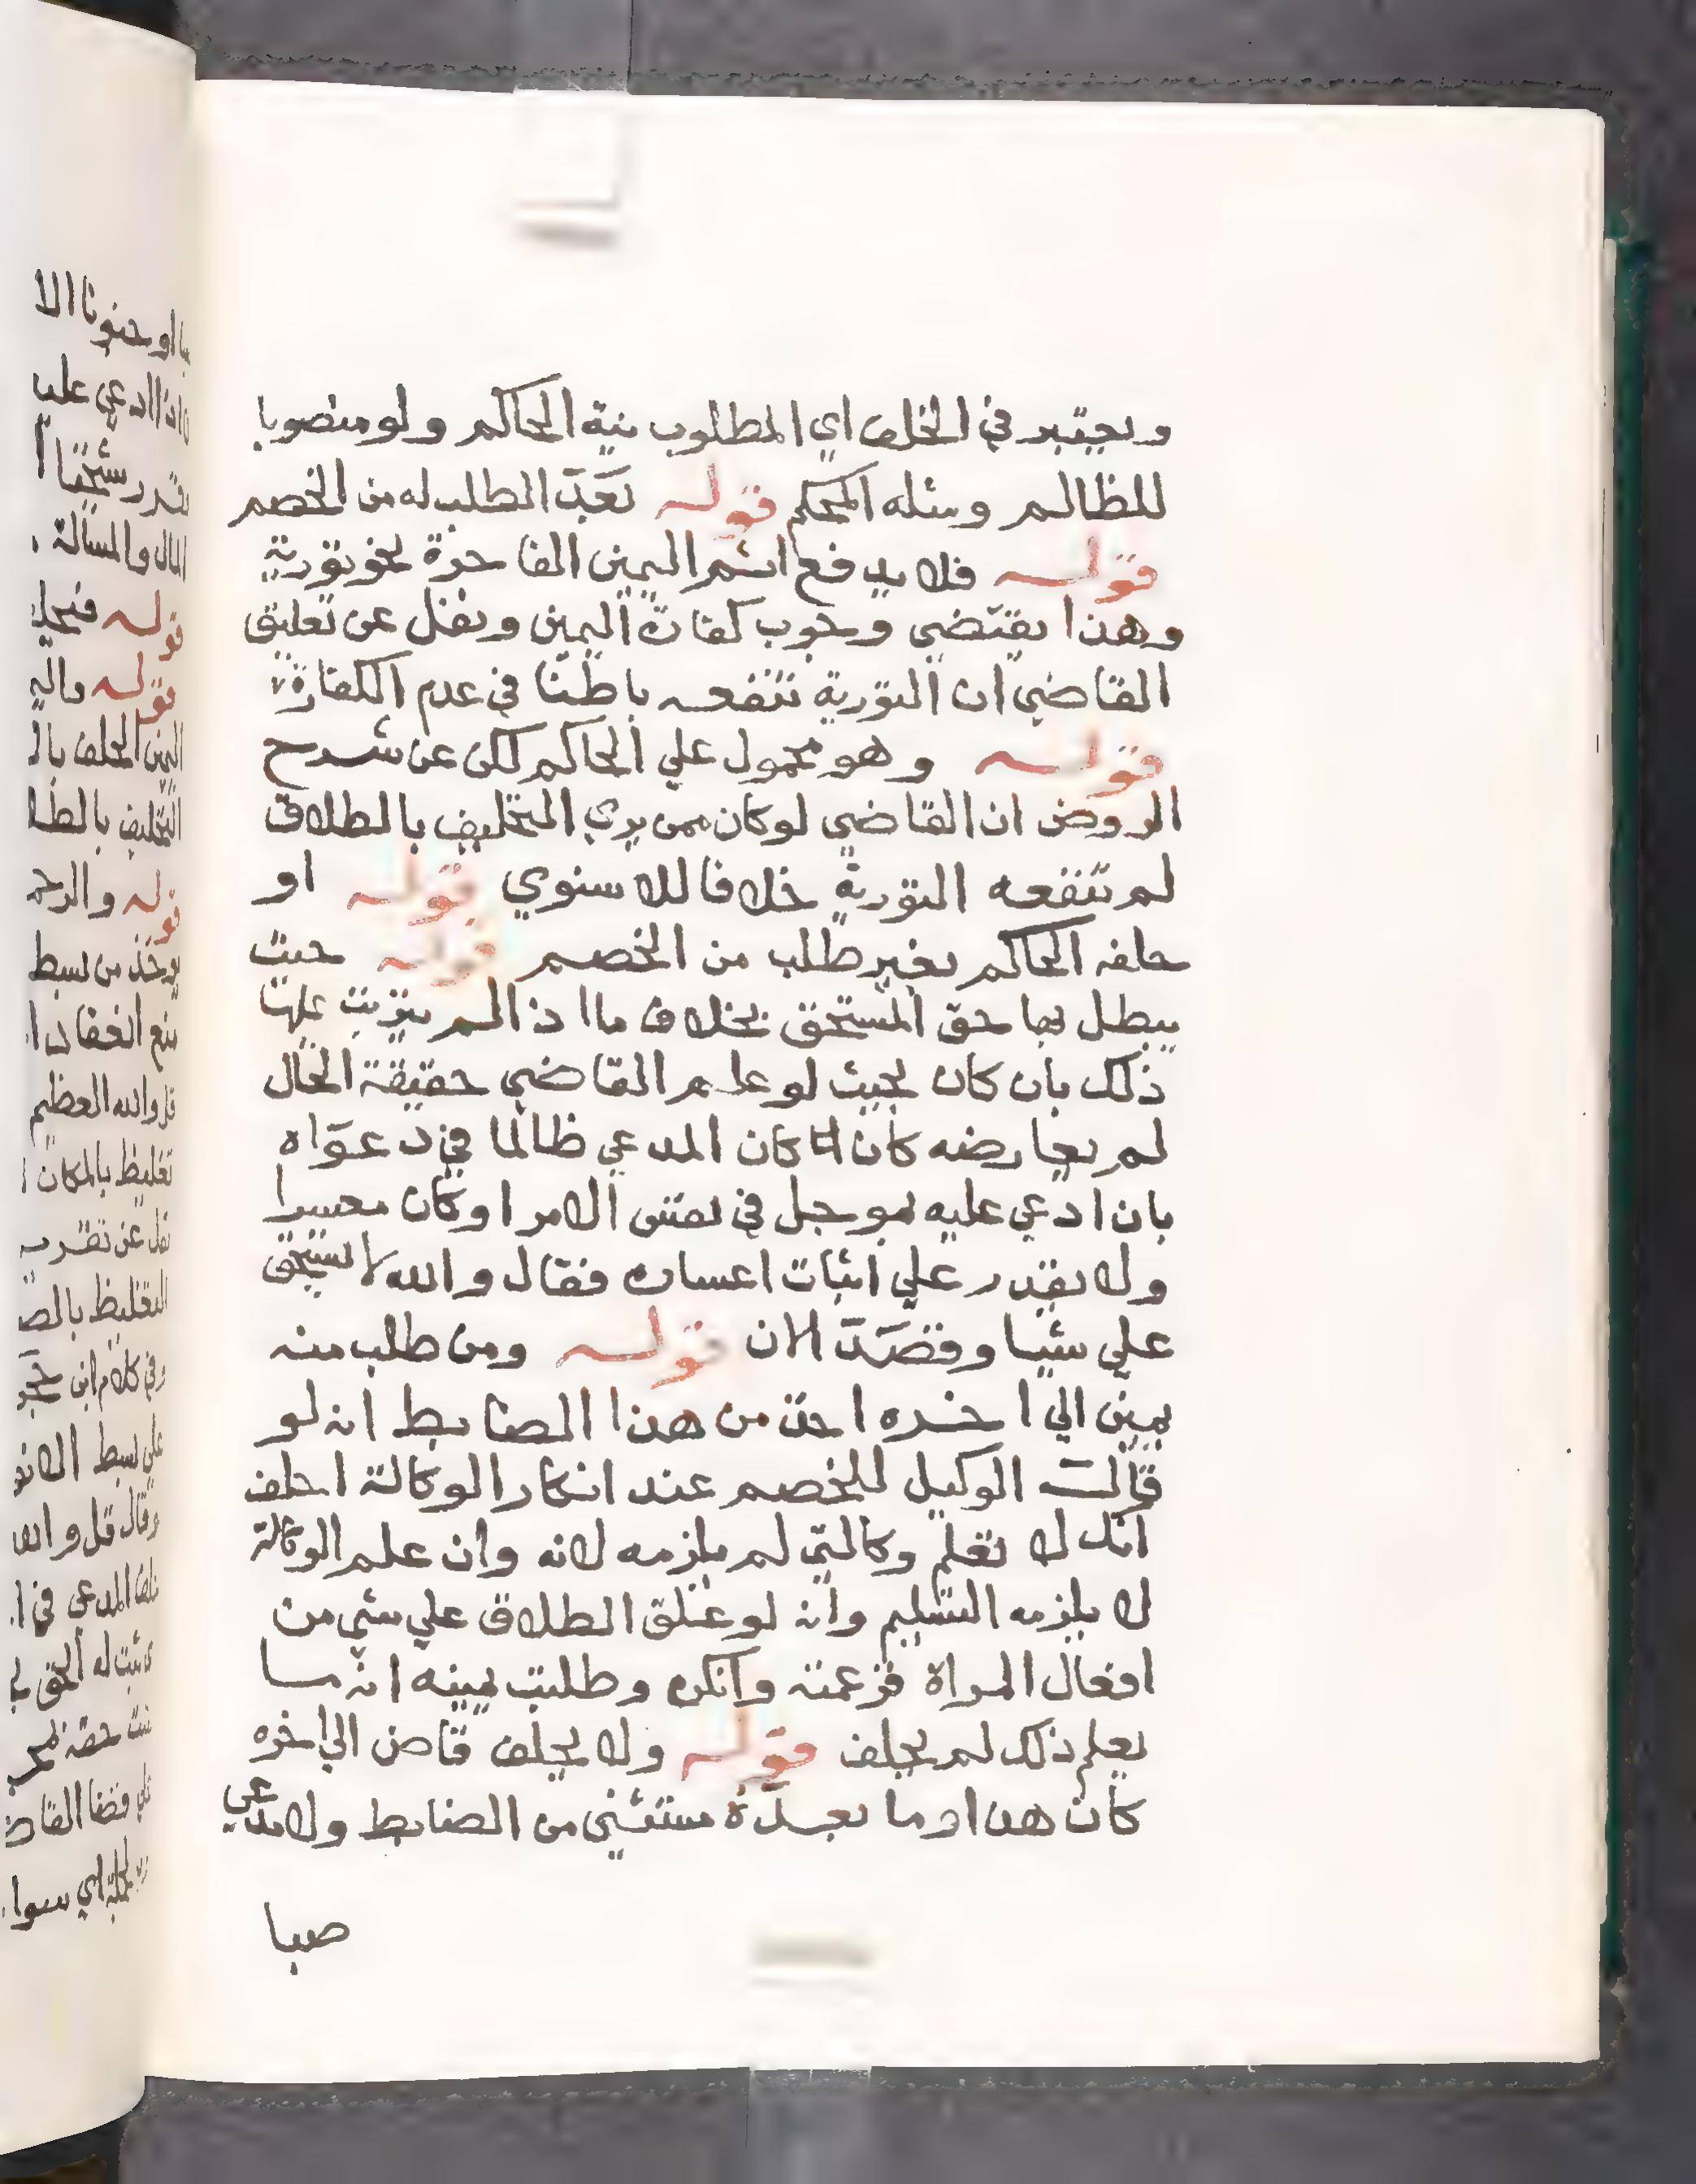 ويعتبر في الحلف اي المطلوب نية الحاكم ولو منصوبا
للمظالم ومثله المحكم قوله بعد الطلب له من الخصم
قوله فلا يدفع اثم اليمين الفاجرة نحو تورية
وهذا يقتضي وجوب كفارة اليمين ونقل عن تعليق
القاضي ان التورية تنفعه باطنا في عدم الكفارة
قوله وهو محمول علي الحاكم لكن عن شرح
الروض ان القاضي لو كان ممن يري التحليف بالطلاق
لم تنفعه التورية خلافا للاسنوي قوله او
حلفه الحاكم بغير طلب من الخصم قوله حيث
يبطل بها حق المستحق بخلاف ما اذا لم يترتب عليها
ذلك بان كان بحيث لو علم القاضي حقيقة الحال
لم يعارضه كان كان المدعي ظالما في دعواه
بان ادعي عليه بموجل في نفس الامر او كان معسرا
ولا يقدر علي اثبات اعساره فقال والله لا تستحق
علي شيا وقصد الان قوله ومن طلب منه
يمين الي اخره اخذ من هذا الضابط انه لو
قالت الوكيل للخصم عند انكار الوكالة احلف
انك لا تعلم وكالتي لم يلزمه لانه وان علم الوكالة
لا يلزمه التسليم وانه لو علق الطلاق علي شي من
افعال المراة فزعمته وانكره وطلبت يمينه انه ما
يعلم ذلك لم يحلف قوله ولا يحلف قاض الي اخره
كان هذا وما بعده مستثني من الضابط ولا مدعي
صبا